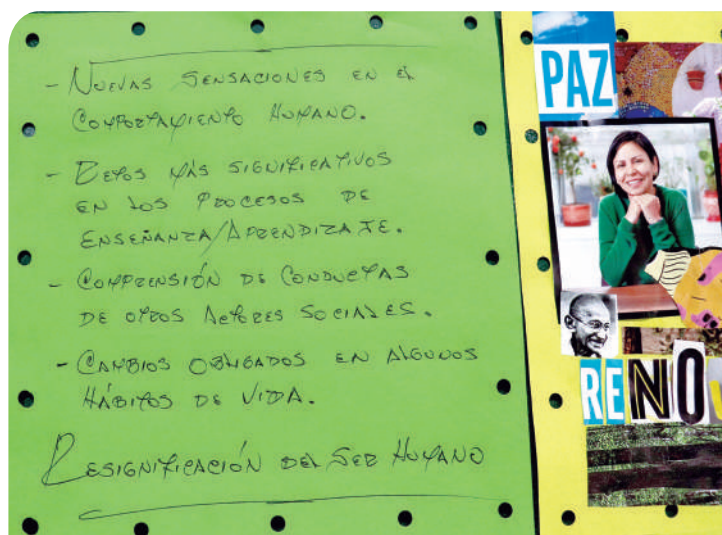 - NUEVAS SENSACIONES EN EL
COMPORTAMIENTO HUMANO.
- RETOS MÁS SIGNIFICATIVOS
EN LOS PROCESOS DE
ENSEÑANZA/APRENDIZAJE.
- COMPRENSIÓN DE CONDUCTAS
DE OTROS ACTORES SOCIALES.
- CAMBIOS OBLIGADOS EN ALGUNOS
HÁBITOS DE VIDA.
RESIGNIFICACIÓN DEL SER HUMANO
PAZ
RENO